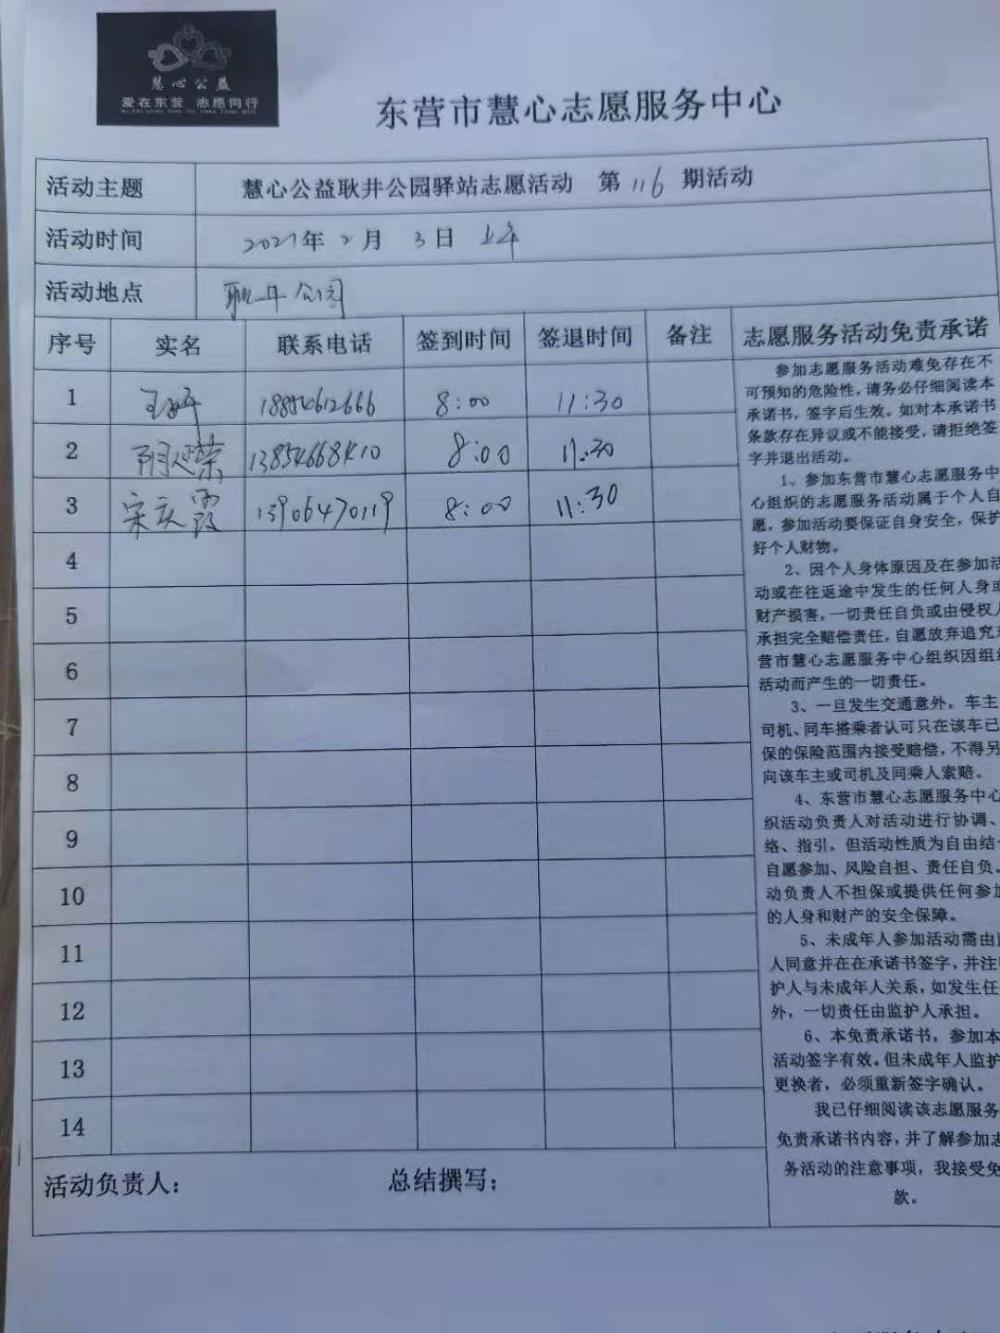 慧心公益
爱在东营 志愿同行
东营市慧心志愿服务中心
活动主题 慧心公益耿井公园驿站志愿活动 第116期活动
活动时间 2021年2月3日 上午
活动地点 公园
序号 实名 联系电话 签到时间 签退时间 备注 志愿服务活动免责承诺
1 王 18854612666 8:00 11:30
2 13854668410 8:00 11:30
3 宋庆霞 13906470119 8:00 11:30
4
5
6
7
8
9
10
11
12
13
14
参加志愿服务活动难免存在不
可预知的危险性,请务必仔细阅读本
承诺书,签字后生效。如对本承诺书
条款存在异议或不能接受,请拒绝签
字并退出活动。
1、参加东营市慧心志愿服务中
心组织的志愿服务活动属于个人自
愿,参加活动要保证自身安全,保护
好个人财物。
2、因个人身体原因及在参加活
动或在往返途中发生的任何人身或
财产损害,一切责任自负或由侵权人
承担完全赔偿责任,自愿放弃追究
营市慧心志愿服务中心组织因组织
活动而产生的一切责任。
3、一旦发生交通意外,车主
司机、同车搭乘者认可只在该车已
保的保险范围内接受赔偿,不得另
向该车主或司机及同乘人索赔。
4、东营市慧心志愿服务中心
织活动负责人对活动进行协调、
络、指引,但活动性质为自由结
自愿参加、风险自担、责任自负。
动负责人不担保或提供任何参加
的人身和财产的安全保障。
5、未成年人参加活动需由
人同意并在在承诺书签字,并注
护人与未成年人关系,如发生任
外,一切责任由监护人承担。
6、本免责承诺书,参加本
活动签字有效。但未成年人监护
更换者,必须重新签字确认。
我已仔细阅读该志愿服务
免责承诺书内容,并了解参加志
务活动的注意事项,我接受免
款。
活动负责人: 总结撰写: